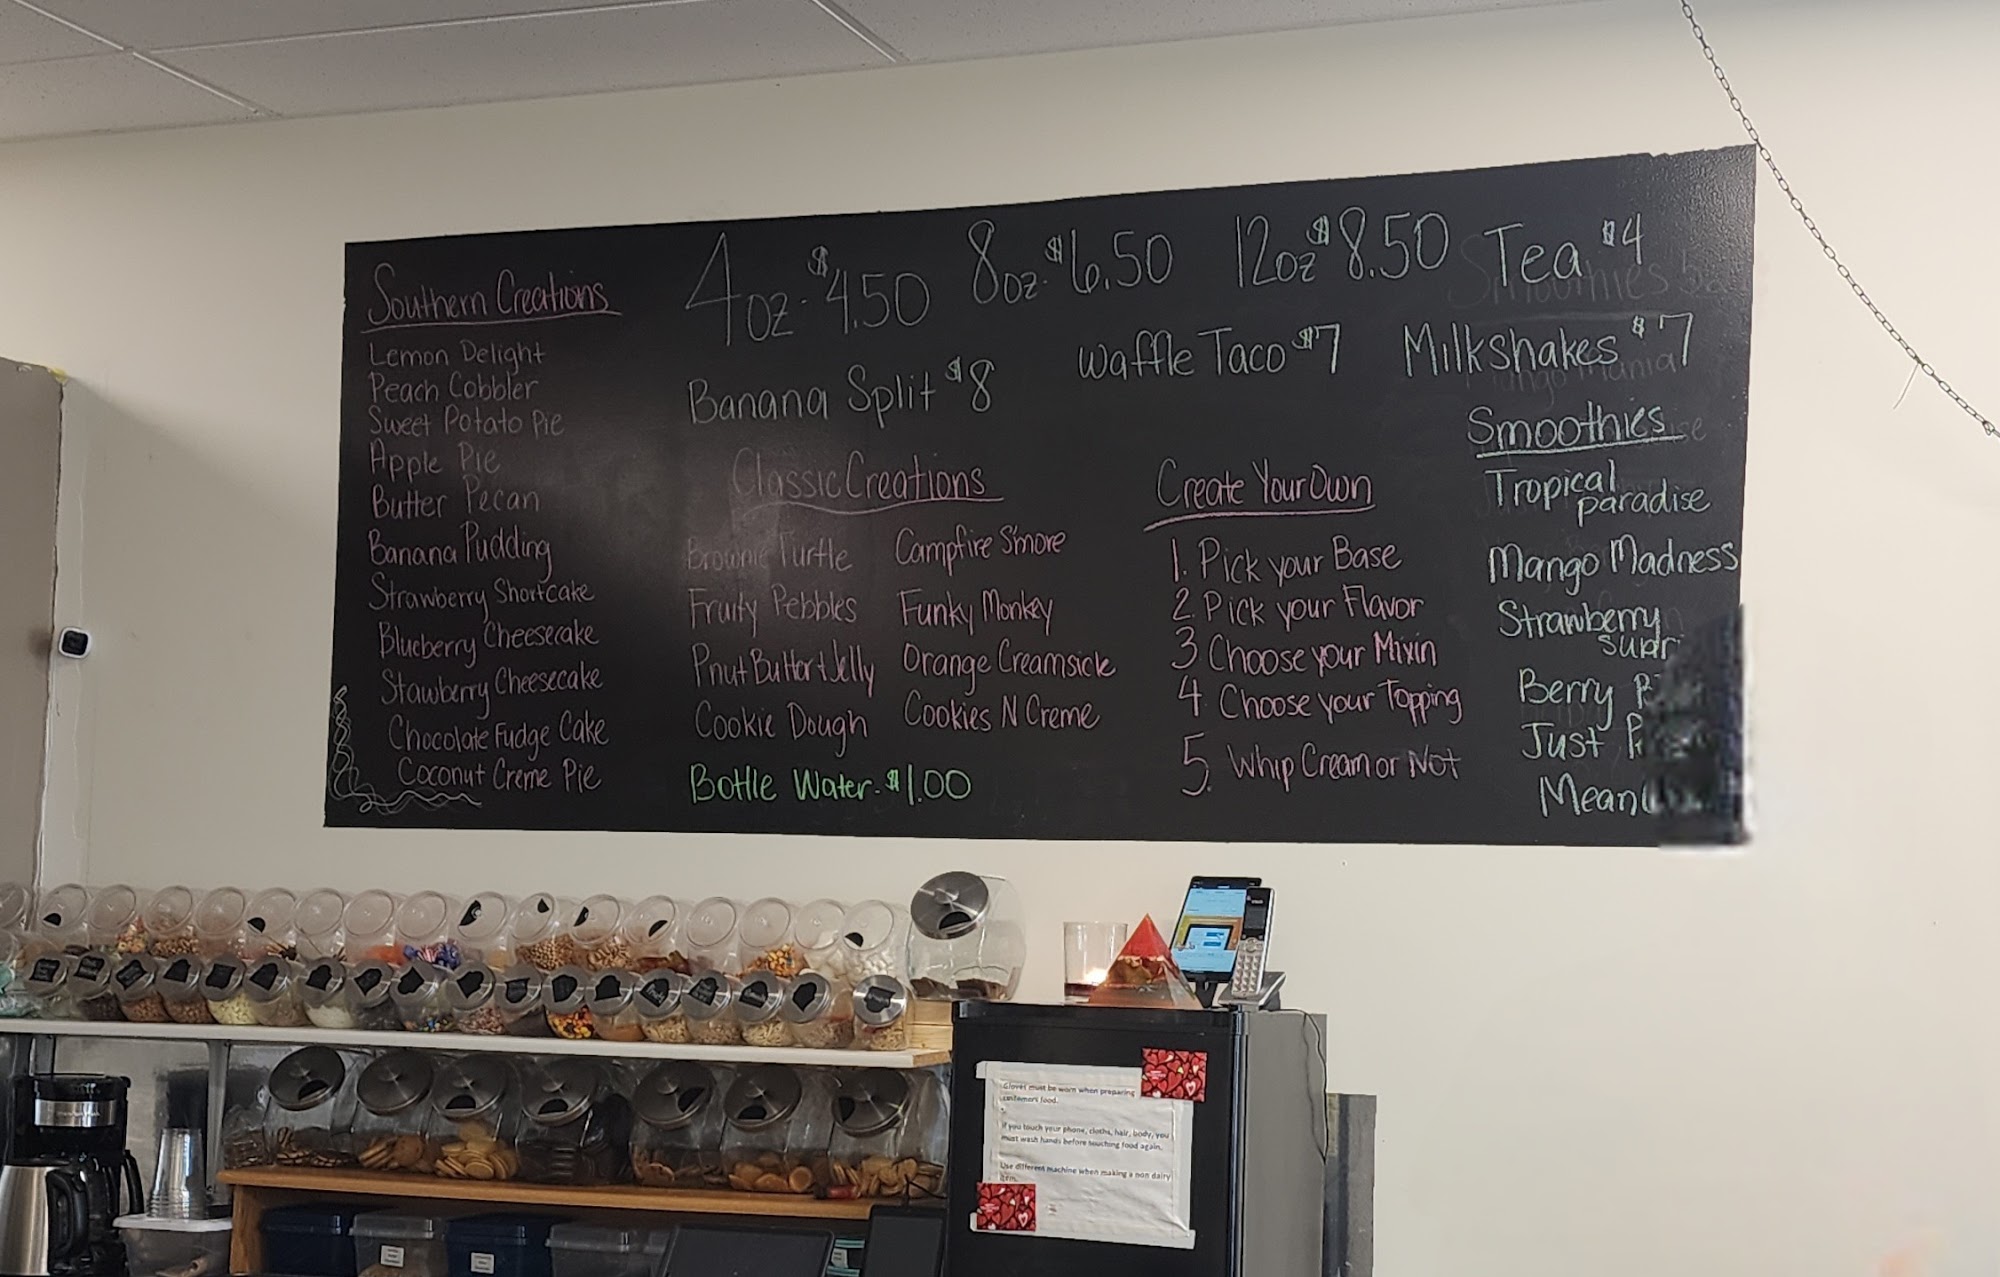 Southern Creations
Lemon Delight
Peach Cobbler
Sweet Potato Pie
Apple Pie
Butter Pecan
Banana Pudding
Strawberry Shortcake
Blueberry Cheesecake
Stawberry Cheesecake
Chocolate Fudge Cake
Coconut Creme Pie
4oz-$4.50
8oz-$6.50
12oz $8.50
Tea $4
Banana Split $8
Waffle Taco $7
Milkshakes $7
Classic Creations
Brownie Turtle
Fruity Pebbles
Pnut Butter + Jelly
Cookie Dough
Campfire S'more
Funky Monkey
Orange Creamsicle
Cookies N Creme
Bottle Water-$1.00
Create Your Own
1. Pick your Base
2. Pick your Flavor
3 Choose your Mixin
4 Choose your Topping
5. Whip Cream or Not
Smoothies
Tropical
paradise
Mango Madness
Strawberry
Berry
Just
Mean
Gloves must be worn when preparing
customers food.
If you touch your phone, cloths, hair, body, you
must wash hands before touching food again.
Use different machine when making a non dairy
item.